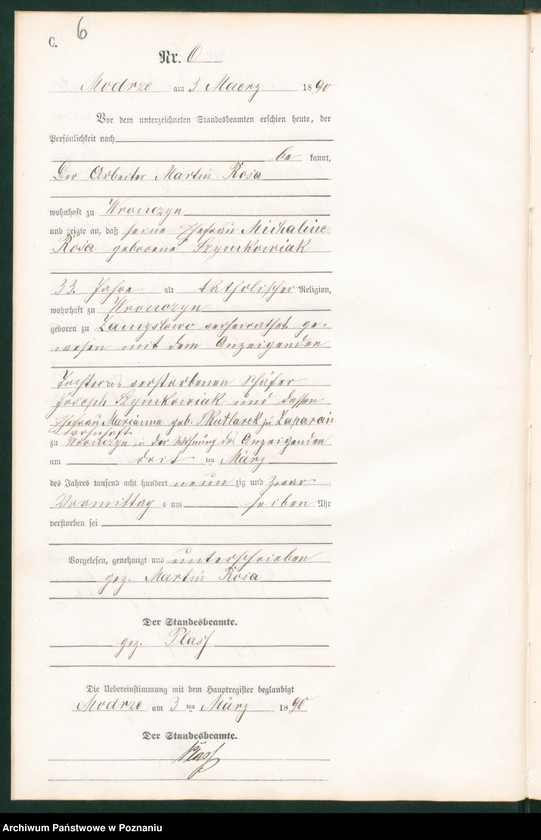 6
C.
Nr. 6
Modrze am 3 Maerz 1890
Vor dem unterzeichneten Standesbeamten erschien heute, der
Persönlichkeit nach
be kannt,
Der Arbeiter Martin Rosa
wohnhaft zu Wronczyn
und zeigte an, daß seine Ehefrau Michaline
Rosa geborene Szymkowiak
33 Jahre alt katholischer Religion,
wohnhaft zu Wronczyn
geboren zu Zamyslowo verheirathet ge-
wesen mit dem Anzeigenden
Tochter des verstorbenen Schäfer
Joseph Szymkowiak und dessen
Ehefrau Marianna geb. zu
wohnhaft
zu Wronczyn in der Wohnung des Anzeigenden
am drit ten März
des Jahres tausend acht hundert neun zig und zwar
Vormittag s um sieben Uhr
verstorben sei
Vorgelesen, genehmigt und unterschrieben
gez. Martin Rosa
Der Standesbeamte.
gez. Plass
Die Uebereinstimmung mit dem Hauptregister beglaubigt
Modrze am 3 ten März 1890
Der Standesbeamte.
Plass
Archiwum Państwowe w Poznaniu